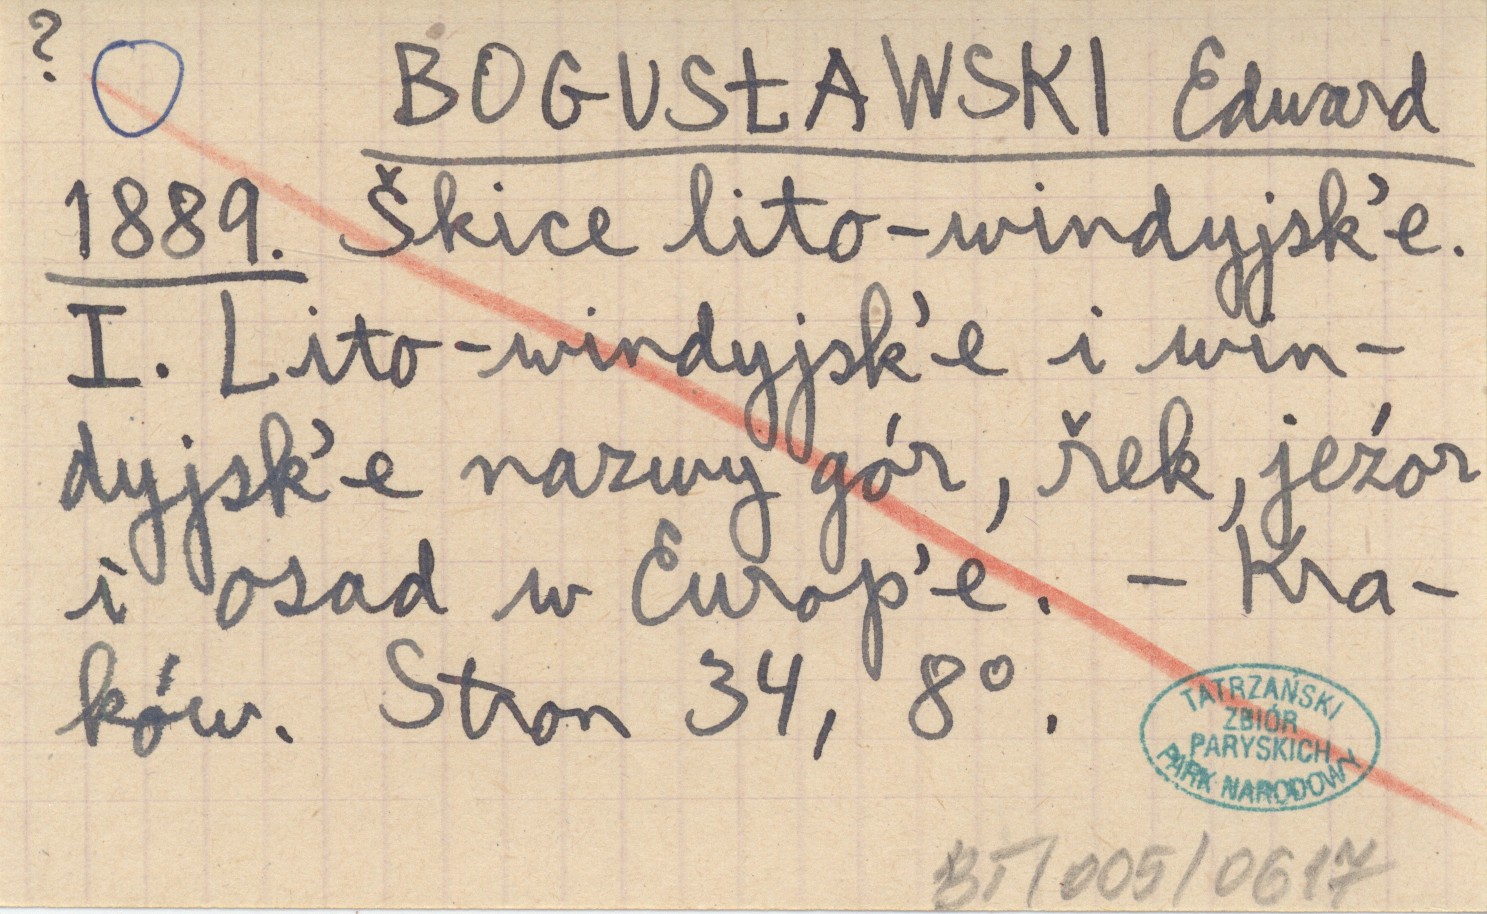 ?
BOGUSŁAWSKI Edward
1889. Škice lito-windyjsk'e.
I. Lito-windyjsk'e i win-
dyjsk'e nazwy gór, řek, jeźor
i osad w Europ'e. - Kra-
ków. Stron 34, 8°.
TATRZAŃSKI
ZBIÓR
PARYSKICH
PARK NARODOWY
BT/005/0617